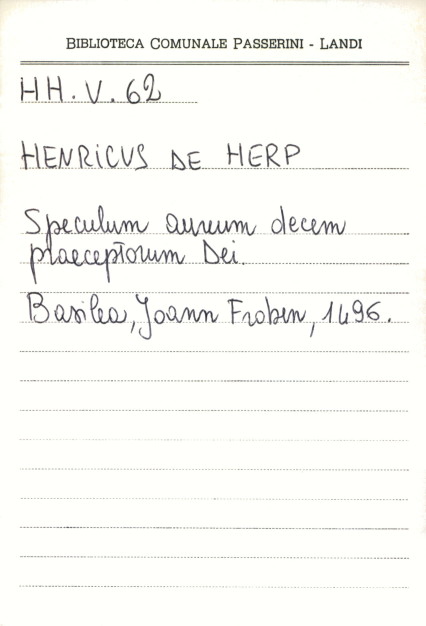 BIBLIOTECA COMUNALE PASSERINI - LANDI
HH. V. 62
HENRICUS DE HERP
Speculum aureum decem
praeceptorum Dei.
Basilea, Joann Froben, 1496.